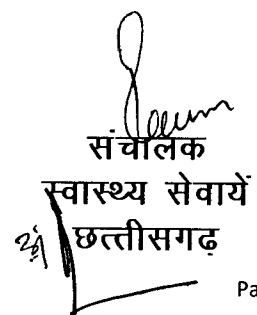 संचालक
स्वास्थ्य सेवायें
छत्तीसगढ़
Pa